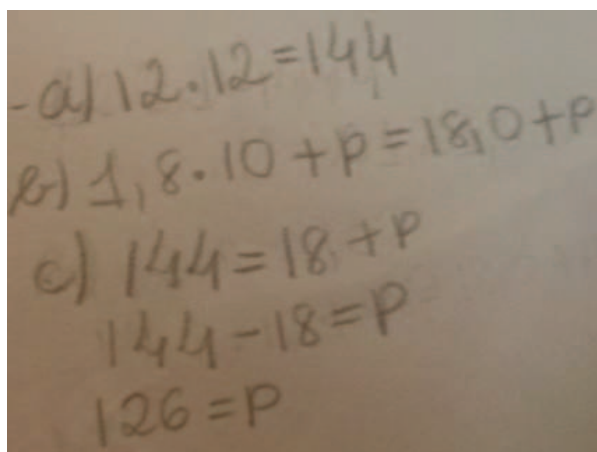 - a) 12.12=144
b) 1,8.10+p=18,0+p
c) 144=18+p
144-18=p
126=p